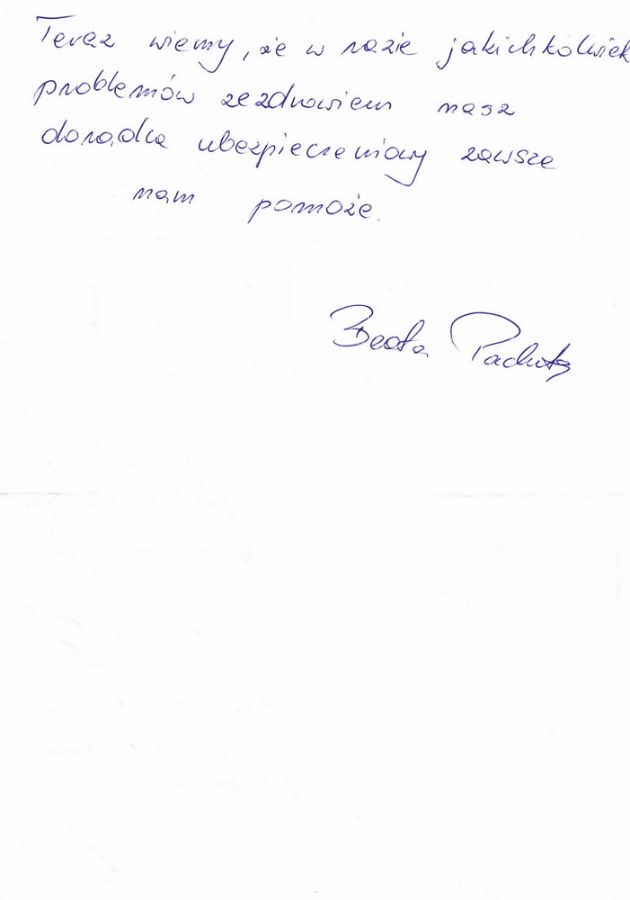 Teraz wiemy, że w razie jakichkolwiek
problemów ze zdrowiem nasz
doradca ubezpieczeniowy zawsze
nam pomoże.
Beata